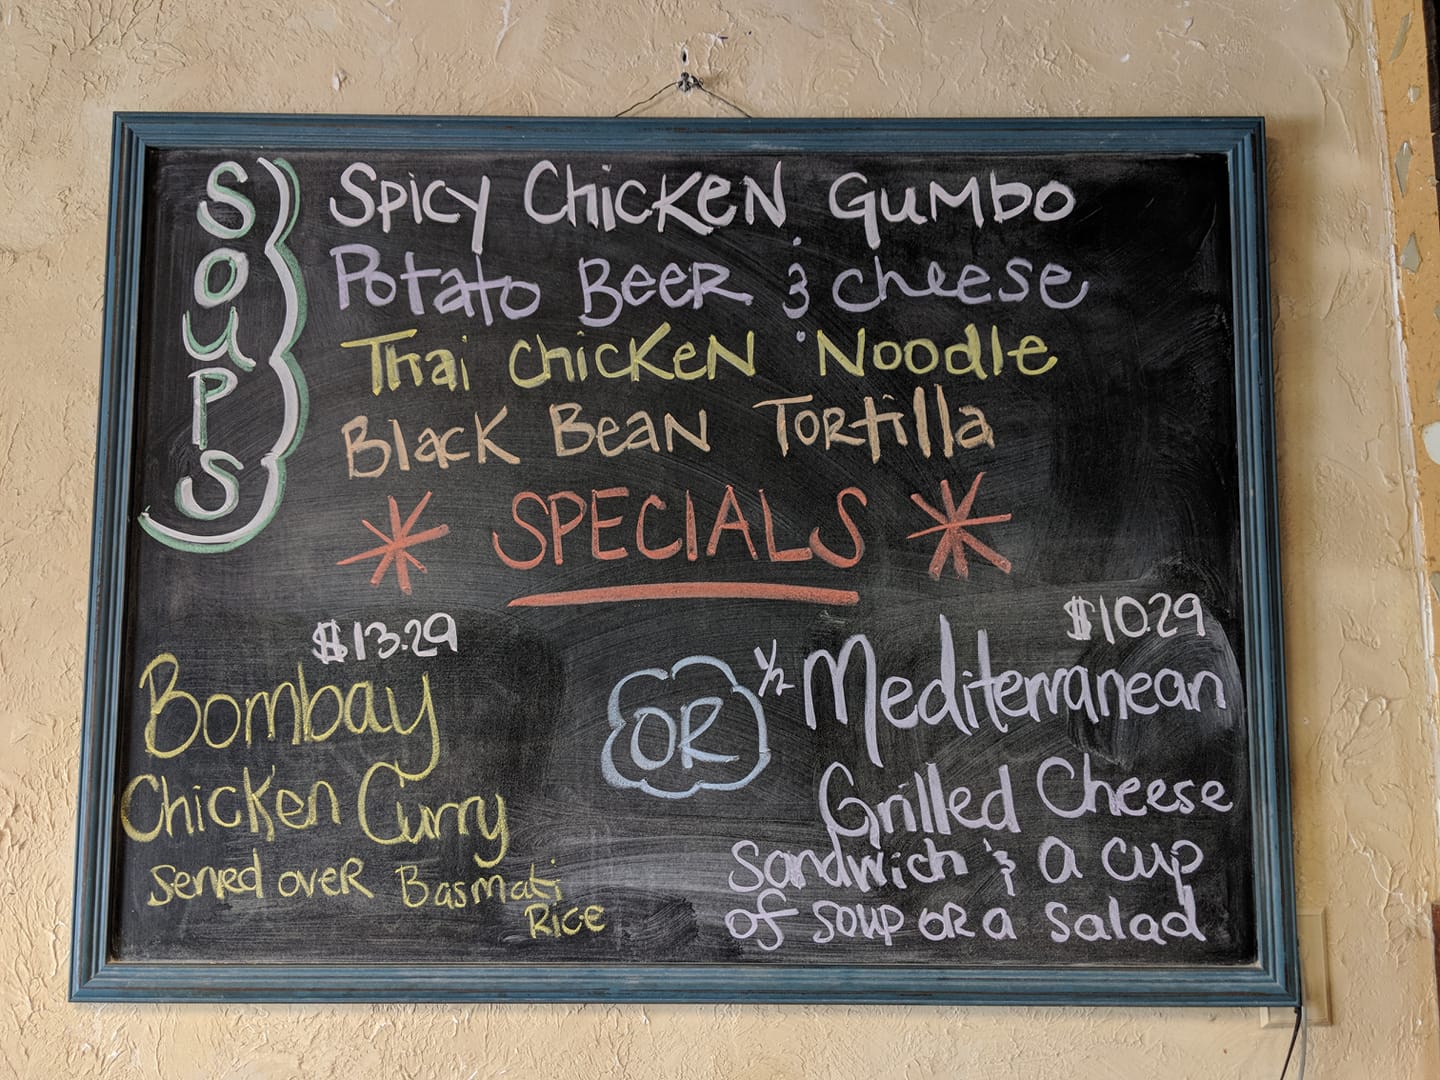 SOUPS
Spicy Chicken Gumbo
Potato Beer & Cheese
Thai Chicken Noodle
Black Bean Tortilla
* SPECIALS *
$13.29
Bombay
Chicken Curry
Served over Basmati
Rice
OR
$10.29
1/2 Mediterranean
Grilled Cheese
Sandwich & a cup
of soup or a salad